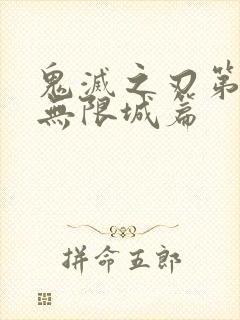 鬼滅之刃第
無限城篇
拼命五郎